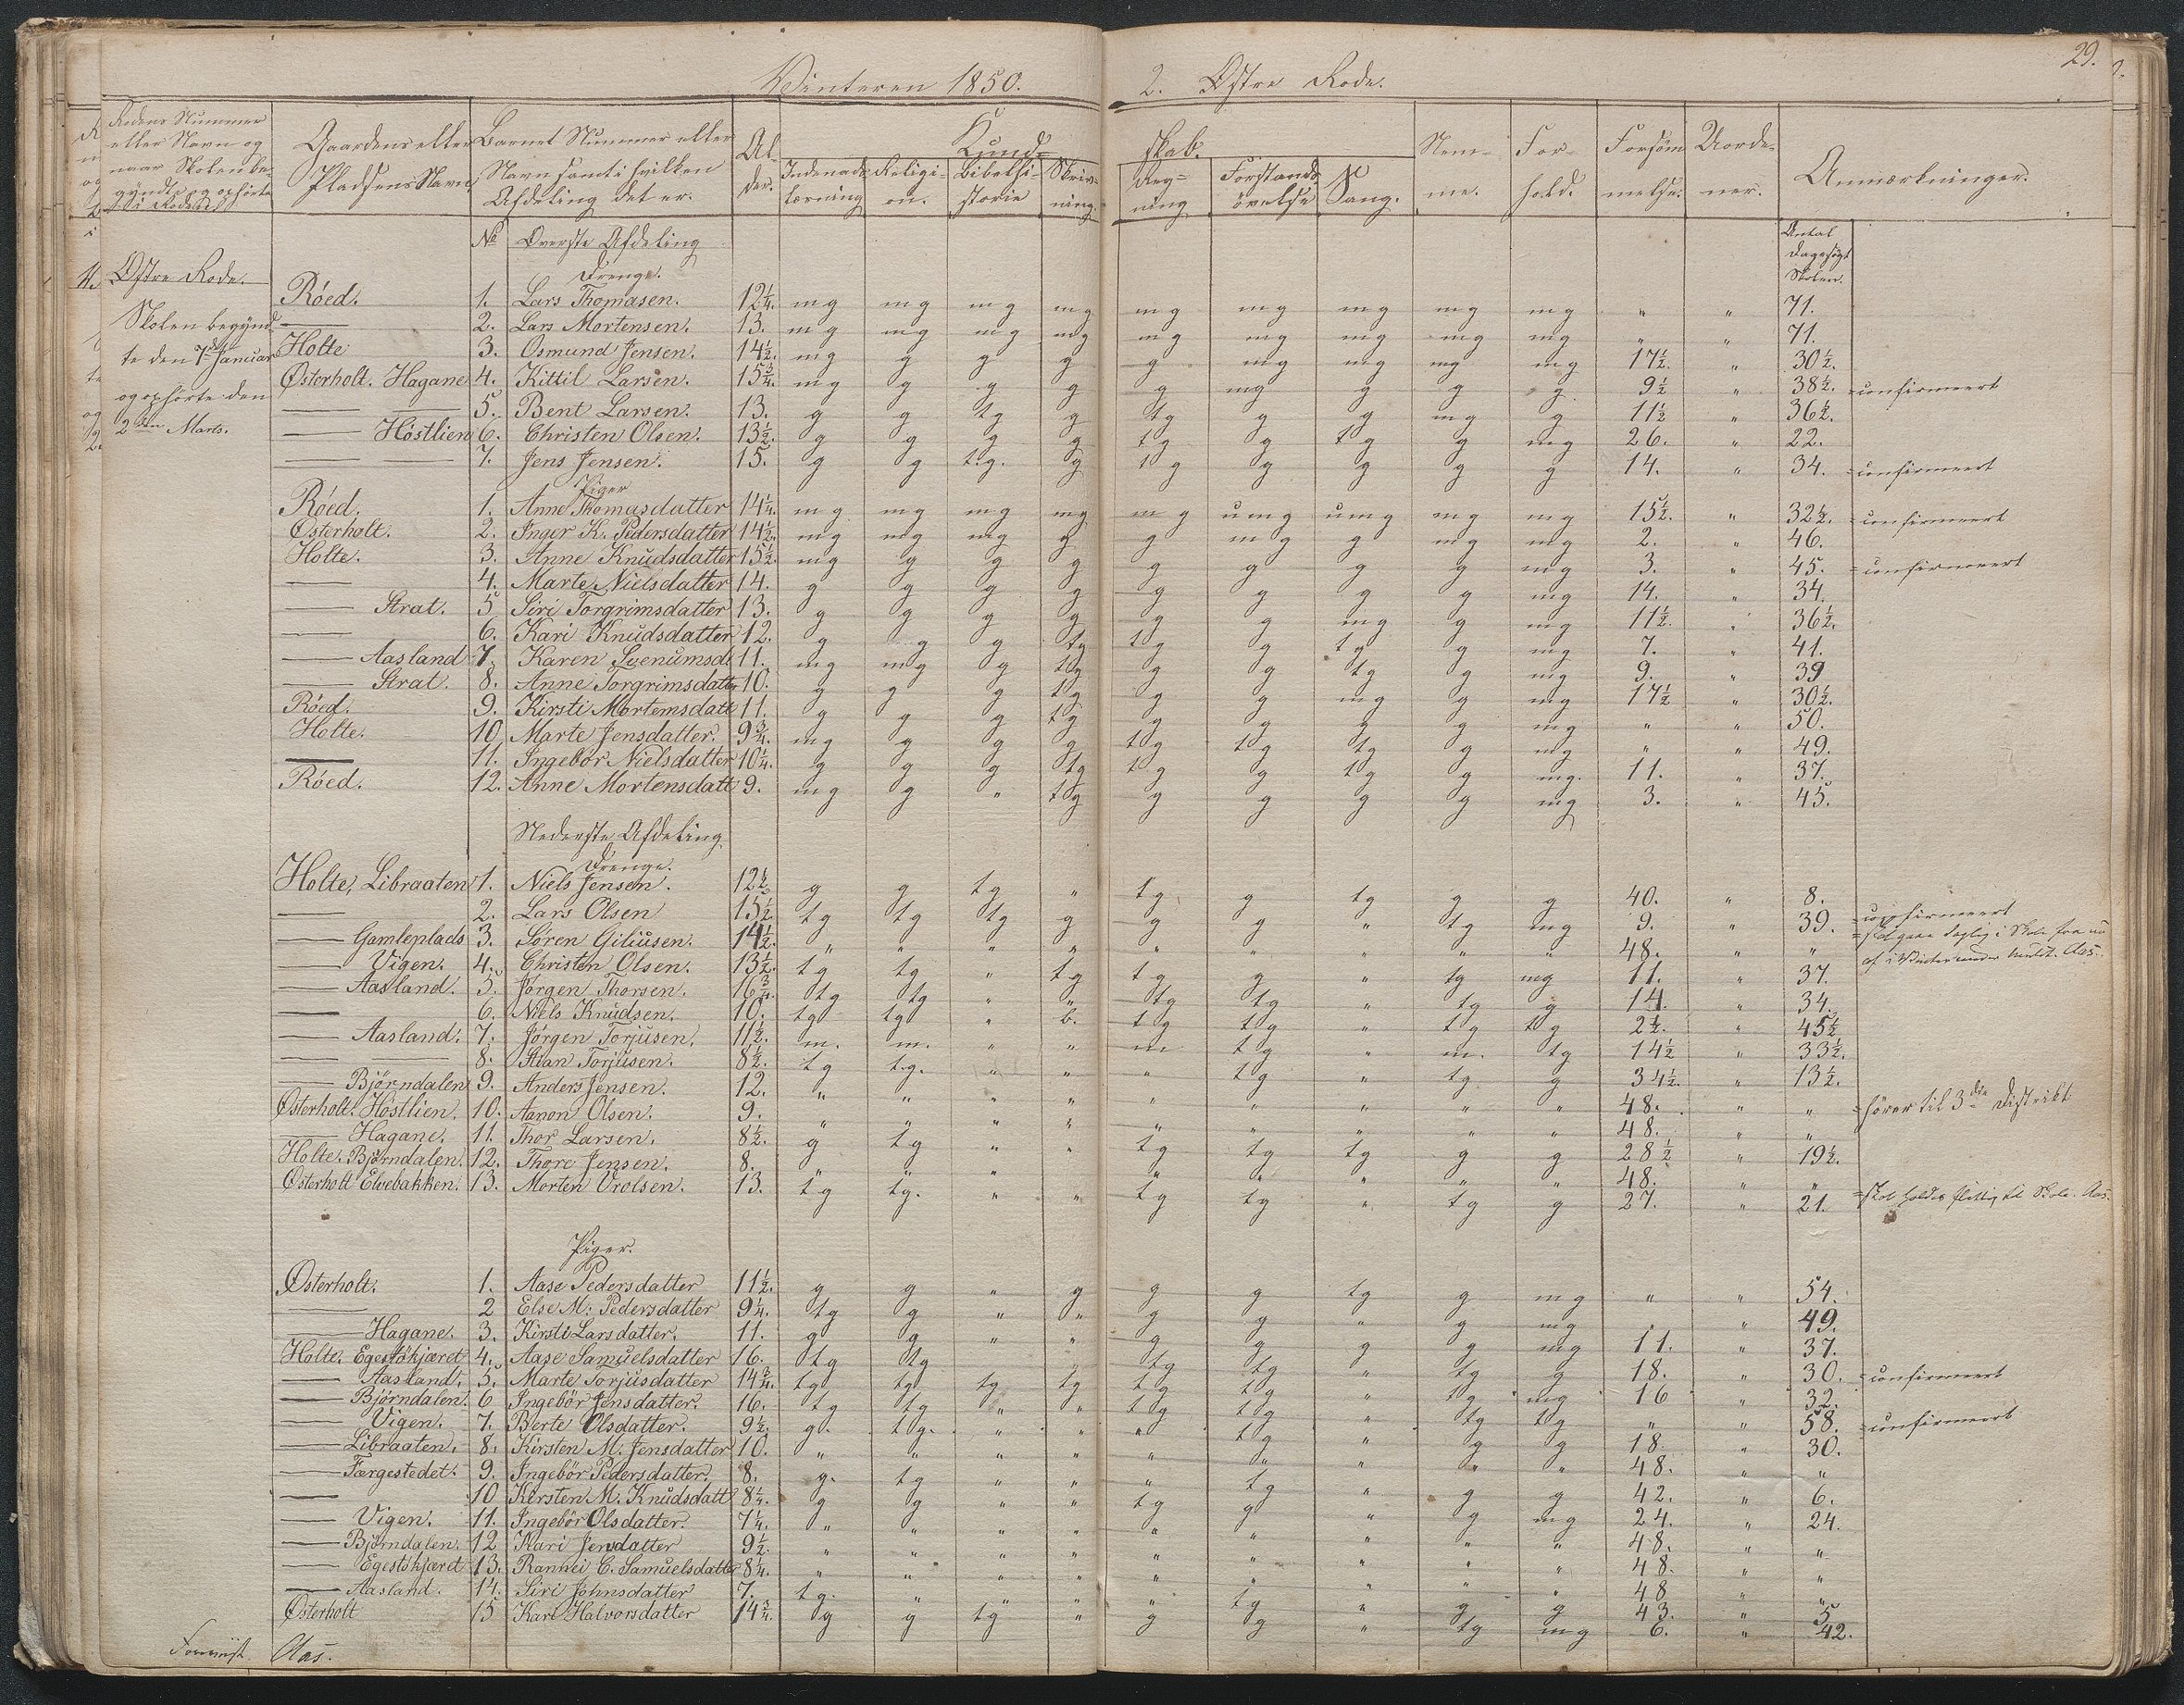 29.
Winteren 1850. 2. Østre Rode.
Rodens Nummer eller Navn og naar Skolen begyndte og ophørte i Roden. | Gaardens eller Pladsens Navn | Barnets Nummer eller Navn samt i hvilken Afdeling det er. | Alder. | Kundskab. Indenadlæsning | Religion. | Bibelhistorie | Skrivning. | Regning | Forstandsøvelse | Sang. | Nemme. | Forhold. | Forsømmelse. | Uordener. | Anmærkninger.
No Øverste Afdeling
Antal Dage søgt Skolen.
Østre Rode.
Skolen begynd-
te den 7de Januar
og ophørte den
2den Marts.
Drenge.
Röed. 1. Lars Thomasen. 12 1/4. mg mg mg mg mg mg mg mg mg " " 71.
— 2. Lars Mortensen. 13. mg mg mg mg mg mg mg mg mg " " 71.
Holte 3. Osmund Jensen. 14 1/2. mg g g g g mg mg mg mg 17 1/2. " 30 1/2.
Østerholt. Hagane 4. Kittil Larsen. 15 3/4. mg g g g g mg g g g 9 1/2 " 38 1/2. = confirmeert
— — 5. Bent Larsen. 13. g g tg g tg g g mg g 11 1/2 " 36 1/2.
— Höstlien 6. Christen Olsen. 13 1/2. g g g g tg g tg g mg 26. " 22.
— — 7. Jens Jensen. 15. g g t.g. g tg g g g g 14. " 34. = confirmeert
Piger
Röed. 1. Anne Thomasdatter 14 1/4. mg mg mg mg mg umg umg mg mg 15 1/2. " 32 1/2. = confirmeert
Østerholt. 2. Inger K. Pedersdatter 14 1/2. mg mg mg g g mg g mg mg 2. " 46.
Holte. 3. Anne Knudsdatter 15 1/2. mg g g g g g g g mg 3. " 45. = confirmeert
— 4. Marte Nielsdatter 14. g g g g g g g g mg 14. " 34.
— Strat. 5 Siri Torgrimsdatter 13. g g g g g g mg g mg 11 1/2. " 36 1/2.
— 6. Kari Knudsdatter 12. g g g tg tg g tg g mg 7. " 41.
— Aasland 7. Karen Svenumsd. 11. mg mg g tg g g tg g mg 9. " 39
— Strat. 8. Anne Torgrimsdatter 10. g g g tg g g mg g mg 17 1/2 " 30 1/2.
Röed. 9. Kirsti Mortensdatt 11. g g g tg g g g g mg " " 50.
Holte. 10 Marte Jensdatter. 9 3/4. mg g g g tg tg tg g mg " " 49.
— 11. Ingebör Nielsdatter 10 1/4. g g g tg tg g tg g mg. 11. " 37.
Röed. 12. Anne Mortensdatt 9. mg g " tg g g g g mg 3. " 45.
Nederste Afdeling
Drenge.
Holte, Libraaten 1. Niels Jensen. 12 1/2 g g tg " tg g tg g g 40. " 8.
— 2. Lars Olsen 15 1/2 tg tg tg g g g " tg mg 9. " 39. = confirmeert
— Gamleplads 3. Søren Giliusen. 14 1/2. " " " " " " " " " 48. " " = skal gaae daglig i Skole fra nu af i Vinter under Mulct. Aas.
— Vigen. 4. Christen Olsen. 13 1/2. tg tg " tg tg g " tg mg 11. " 37.
— Aasland. 5. Jørgen Thorsen. 16 3/4. tg tg " " tg tg " tg g 14. " 34.
— 6. Niels Knudsen. 10. tg tg " b. tg tg " tg tg 2 1/2. " 45 1/2
— Aasland. 7. Jörgen Torjusen. 11 1/2. m. m. " " m tg " m. tg 14 1/2 " 33 1/2.
— — 8. Stian Torjusen. 8 1/2. tg t.g. " " " tg " tg g 34 1/2. " 13 1/2.
— Björndalen 9. Anders Jensen. 12. " " " " " " " " " 48. " " = hører til 3die Distrikt
Østerholt. Höstlien. 10. Aanon Olsen. 9. " " " " " " " " " 48. " "
— Hagane. 11. Thor Larsen. 8 1/2. g tg " " tg tg tg g g 28 1/2 " 19 1/2.
Holte. Björndalen. 12. Thore Jensen. 8. " " " " " " " " 48. " "
Østerholt Elvebakken. 13. Morten Vrolsen. 13. tg tg. " " tg tg " tg g 27. " 21. = skal holdes flittig til Skole. Aas.
Piger.
Østerholt. 1. Aase Pedersdatter 11 1/2. g g " g g g tg g mg " " 54.
— 2 Else M. Pedersdatter 9 1/4. tg g " " g g " g mg " " 49.
— Hagane. 3. Kirsti Larsdatter. 11. g g " " g g g g mg 11. " 37.
Holte. Egestökjæret 4. Aase Samuelsdatter 16. tg tg tg tg " tg g 18. " 30. = confirmeert
— Aasland. 5. Marte Torjusdatter 14 3/4. tg tg tg tg tg tg " tg mg 16 " 32.
— Björndalen. 6 Ingebör Jensdatter. 16. tg tg " " tg tg " tg tg " " 58. = confirmeert
— Vigen. 7. Berte Olsdatter. 9 1/2. g. t.g. " " " tg " g g 18 " 30.
— Libraaten. 8. Kirsten M. Jensdatter 10. " " " " " " " " " 48. " "
— Færgestedet. 9. Ingebör Pedersdatter. 8. g. tg " " " tg " g g 42. " 6.
— 10 Kirsten M. Knudsdatt 8 1/4. g g " " tg g " g mg 24. " 24.
— Vigen. 11. Ingebör Olsdatter. 7 1/4. " " " " " " " " " 48. " "
— Björndalen. 12 Kari Jensdatter 9 1/2. " " " " " " " " " 48 " "
— Egestökjæret 13. Rannei C. Samuelsdatter 8 1/4. " " " " " " " " " 48 " "
— Aasland. 14. Siri Johnsdatter 7. tg. " " " " tg " g g 43. " 5
Østerholt 15 Kari Halvorsdatter 14 3/4. g g tg " g g " tg mg 6. " 42.
Aas.